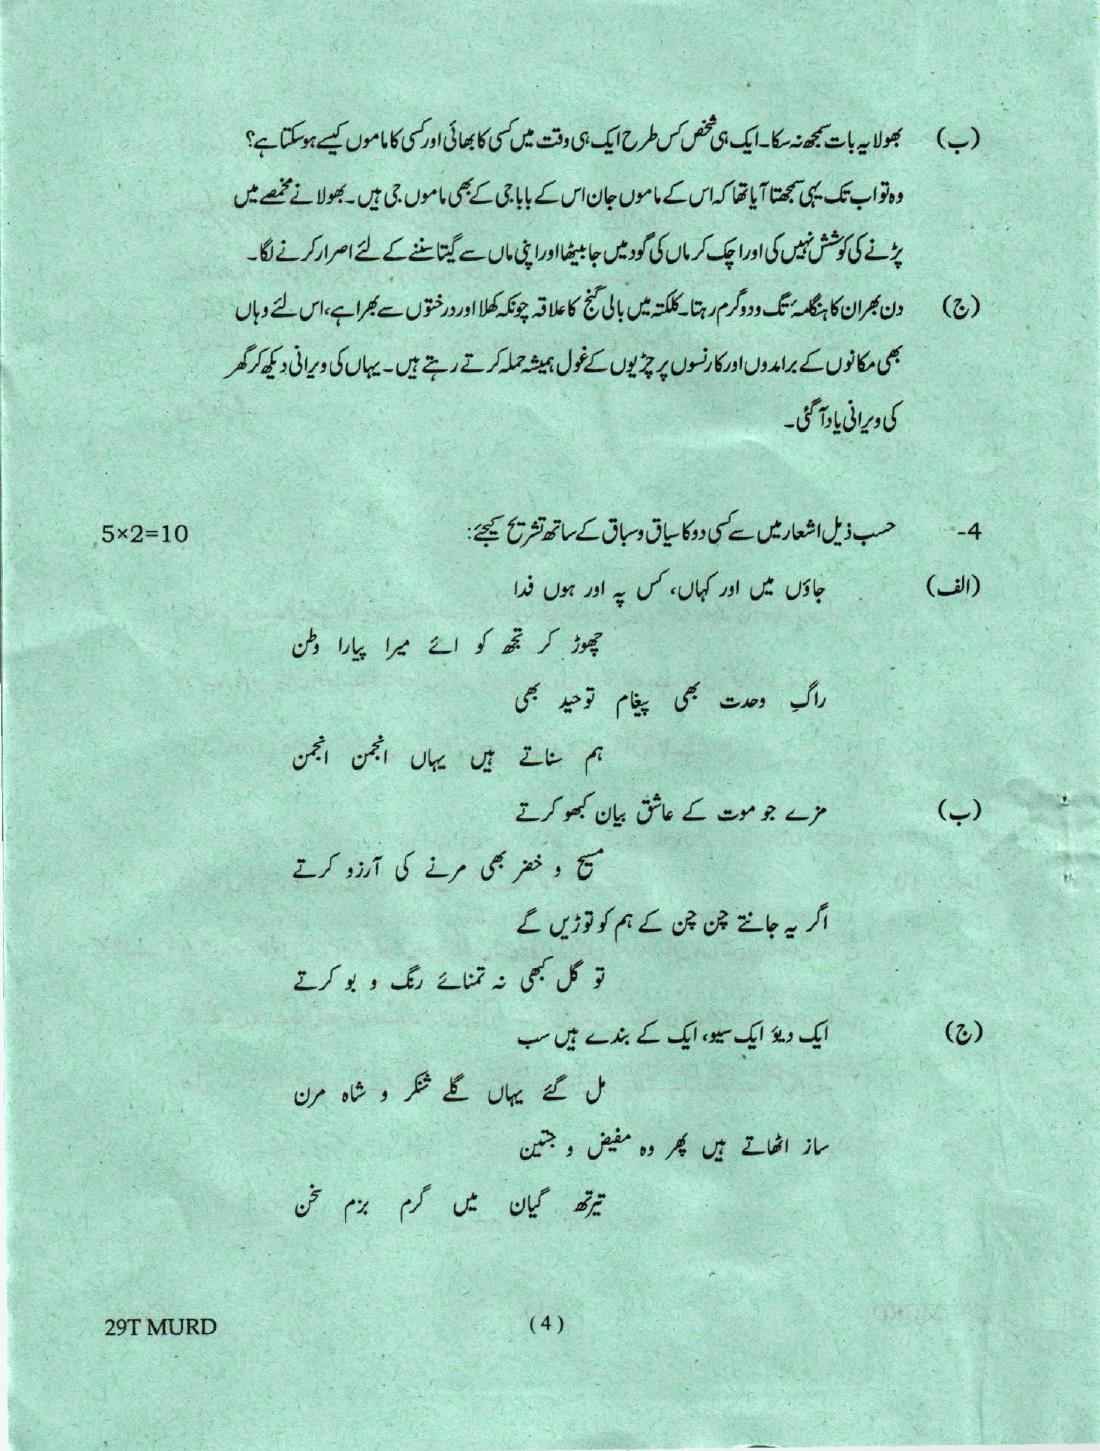 (ب) بھولا یہ بات سمجھ نہ سکا۔ ایک ہی شخص کس طرح ایک ہی وقت میں کسی کا بھائی اور کسی کا ماموں کیسے ہوسکتا ہے؟
وہ تو اب تک یہی سمجھتا آیا تھا کہ اس کے ماموں جان اس کے باباجی کے بھی ماموں جی ہیں۔ بھولا نے مخمصے میں
پڑنے کی کوشش نہیں کی اور اچک کر ماں کی گود میں جا بیٹھا اور اپنی ماں سے گیتا سننے کے لئے اصرار کرنے لگا۔
(ج) دن بھر ان کا ہنگامۂ تگ و دو گرم رہتا۔ کلکتہ میں بالی گنج کا علاقہ چونکہ کھلا اور درختوں سے بھرا ہے، اس لئے وہاں
بھی مکانوں کے برامدوں اور کارنسوں پر چڑیوں کے غول ہمیشہ حملہ کرتے رہتے ہیں۔ یہاں کی ویرانی دیکھ کر گھر
کی ویرانی یاد آ گئی۔
4- حسب ذیل اشعار میں سے کسی دو کا سیاق و سباق کے ساتھ تشریح کیجئے: 5×2=10
(الف) جاؤں میں اور کہاں، کس پہ اور ہوں فدا
چھوڑ کر تجھ کو ائے میرا پیارا وطن
راگِ وحدت بھی پیغام توحید بھی
ہم سناتے ہیں یہاں انجمن انجمن
(ب) مزے جو موت کے عاشق بیان کبھو کرتے
مسیح و خضر بھی مرنے کی آرزو کرتے
اگر یہ جانتے چن چن کے ہم کو توڑیں گے
تو گل کبھی نہ تمنائے رنگ و بو کرتے
(ج) ایک دیوٗ ایک سیو، ایک کے بندے ہیں سب
مل گئے یہاں گلے شنکر و شاہ مرن
ساز اٹھاتے ہیں پھر وہ مفیض و جتین
تیرتھ گیان میں گرم بزم سخن
29T MURD (4)